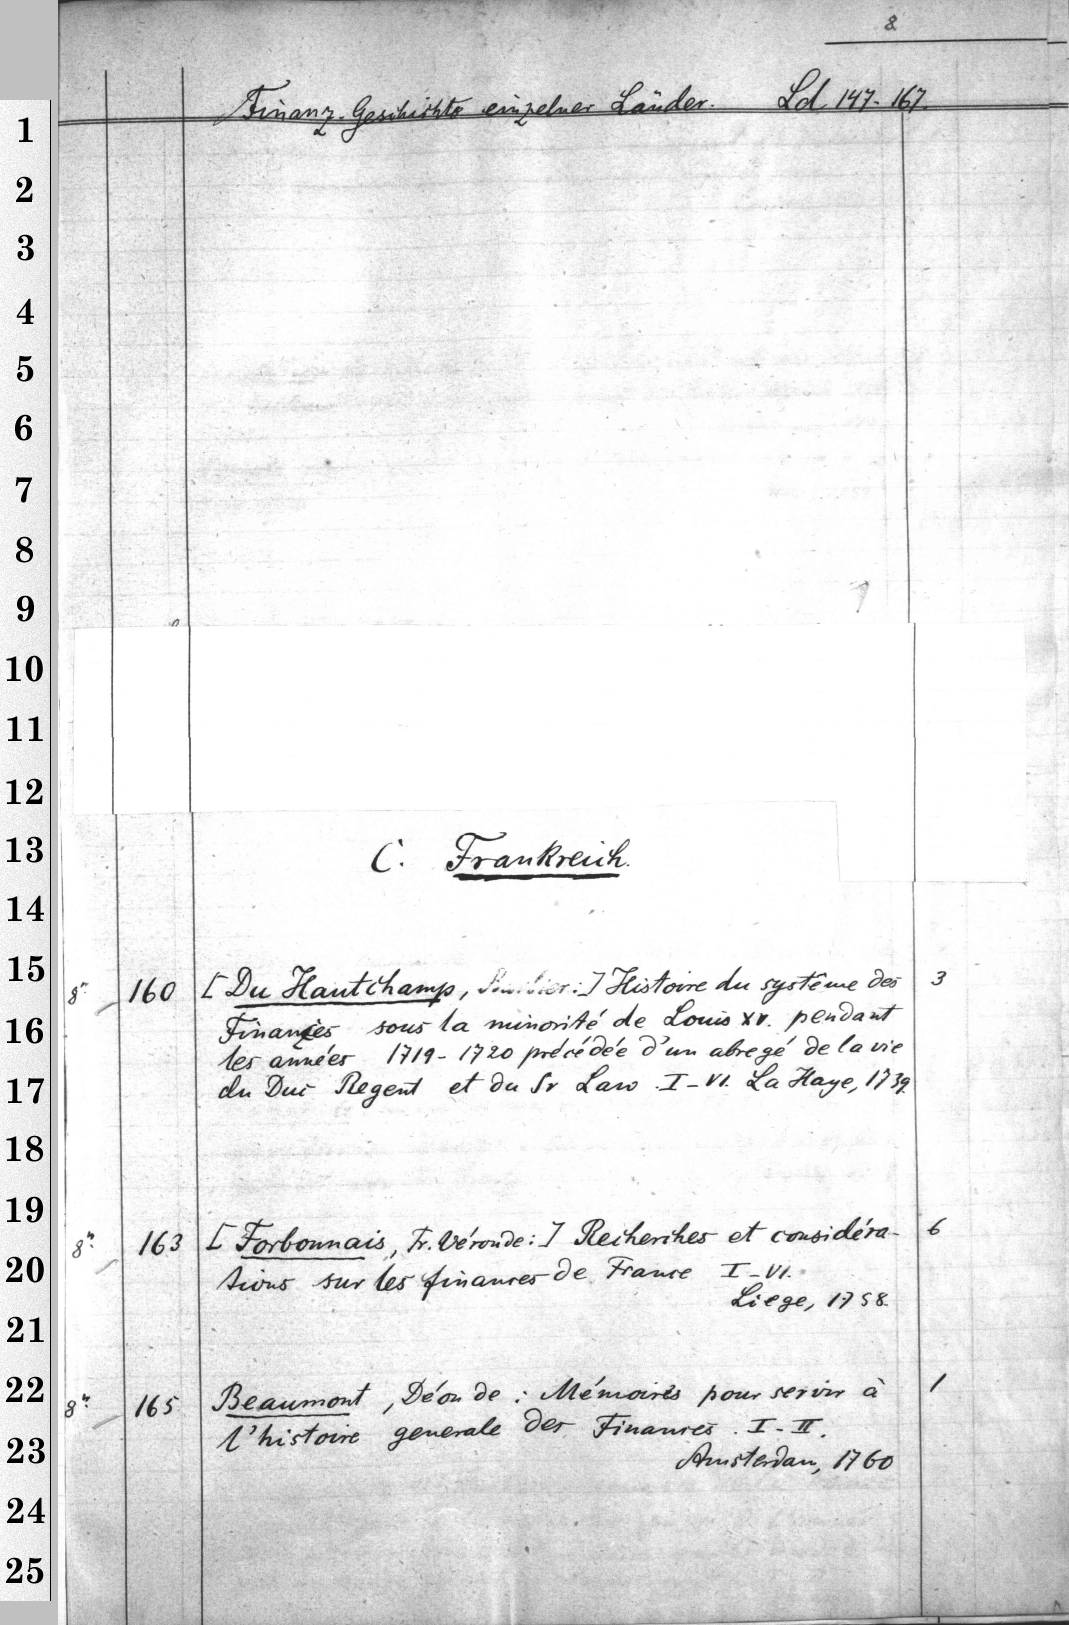 8
Finanz-Geschichte einzelner Länder. Ld 147-167.
1
2
3
4
5
6
7
8
9
10
11
12
13
14
15
16
17
18
19
20
21
22
23
24
25
C. Frankreich.
8° 160 [Du Hautchamp, Barbier:] Histoire du système des 3
Finances sous la minorité de Louis XV. pendant
les années 1719-1720 précédée d'un abregé de la vie
du Duc Regent et du Sr Law. I-VI. La Haye, 1739.
8° 163 [Forbonnais, Fr. Véronde:] Recherches et considéra- 6
tions sur les finances de France I-VI.
Liege, 1758.
8° 165 Beaumont, Déon de: Mémoires pour servir à 1
l'histoire generale des Finances. I-II.
Amsterdam, 1760